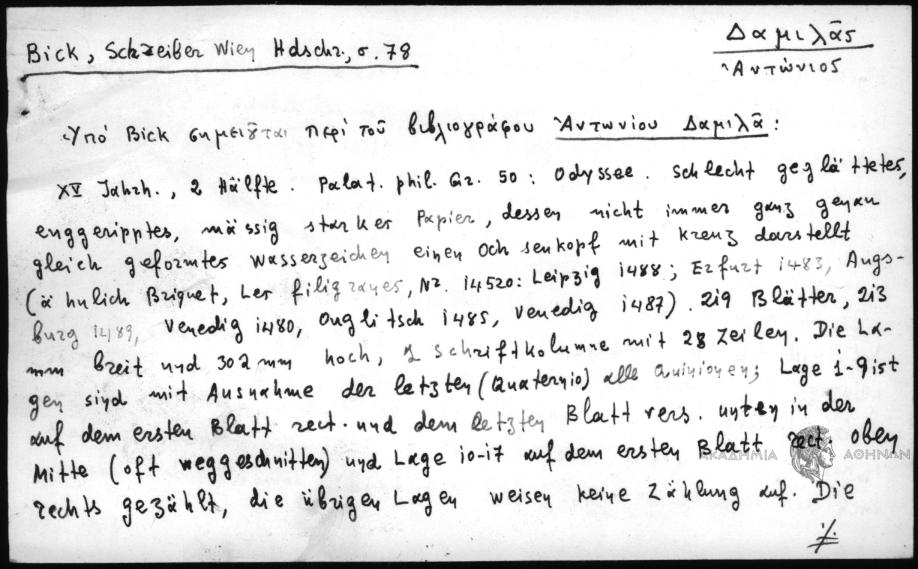 Bick, Schreiber Wien Hdschr., σ. 78
Δαμιλᾶς
Ἀντώνιος
Ὑπό Bick σημειοῦται περί τοῦ βιβλιογράφου Ἀντωνίου Δαμιλᾶ:
XV Jahrh., 2 Hälfte. Palat. phil. Gr. 50: Odyssee. Schlecht geglättetes,
enggeripptes, mässig starker Papier, dessen nicht immer ganz genau
gleich geformtes Wasserzeichen einen Ochsenkopf mit Kreuz darstellt
(ähnlich Briquet, Les filigranes, Nr. 14520: Leipzig 1488; Erfurt 1483, Augs-
burg 1489, Venedig 1480, Onglitsch 1485, Venedig 1487). 219 Blätter, 213
mm breit und 302 mm hoch, 1 Schriftkolumne mit 28 Zeilen. Die La-
gen sind mit Ausnahme der letzten (Quaternio) alle Quinionen; Lage 1-9 ist
auf dem ersten Blatt rect. und dem letzten Blatt vers. unten in der
Mitte (oft weggeschnitten) und Lage 10-17 auf dem ersten Blatt rect. oben
rechts gezählt, die übrigen Lagen weisen keine Zählung auf. Die
./.
ΑΚΑΔΗΜΙΑ ΑΘΗΝΩΝ